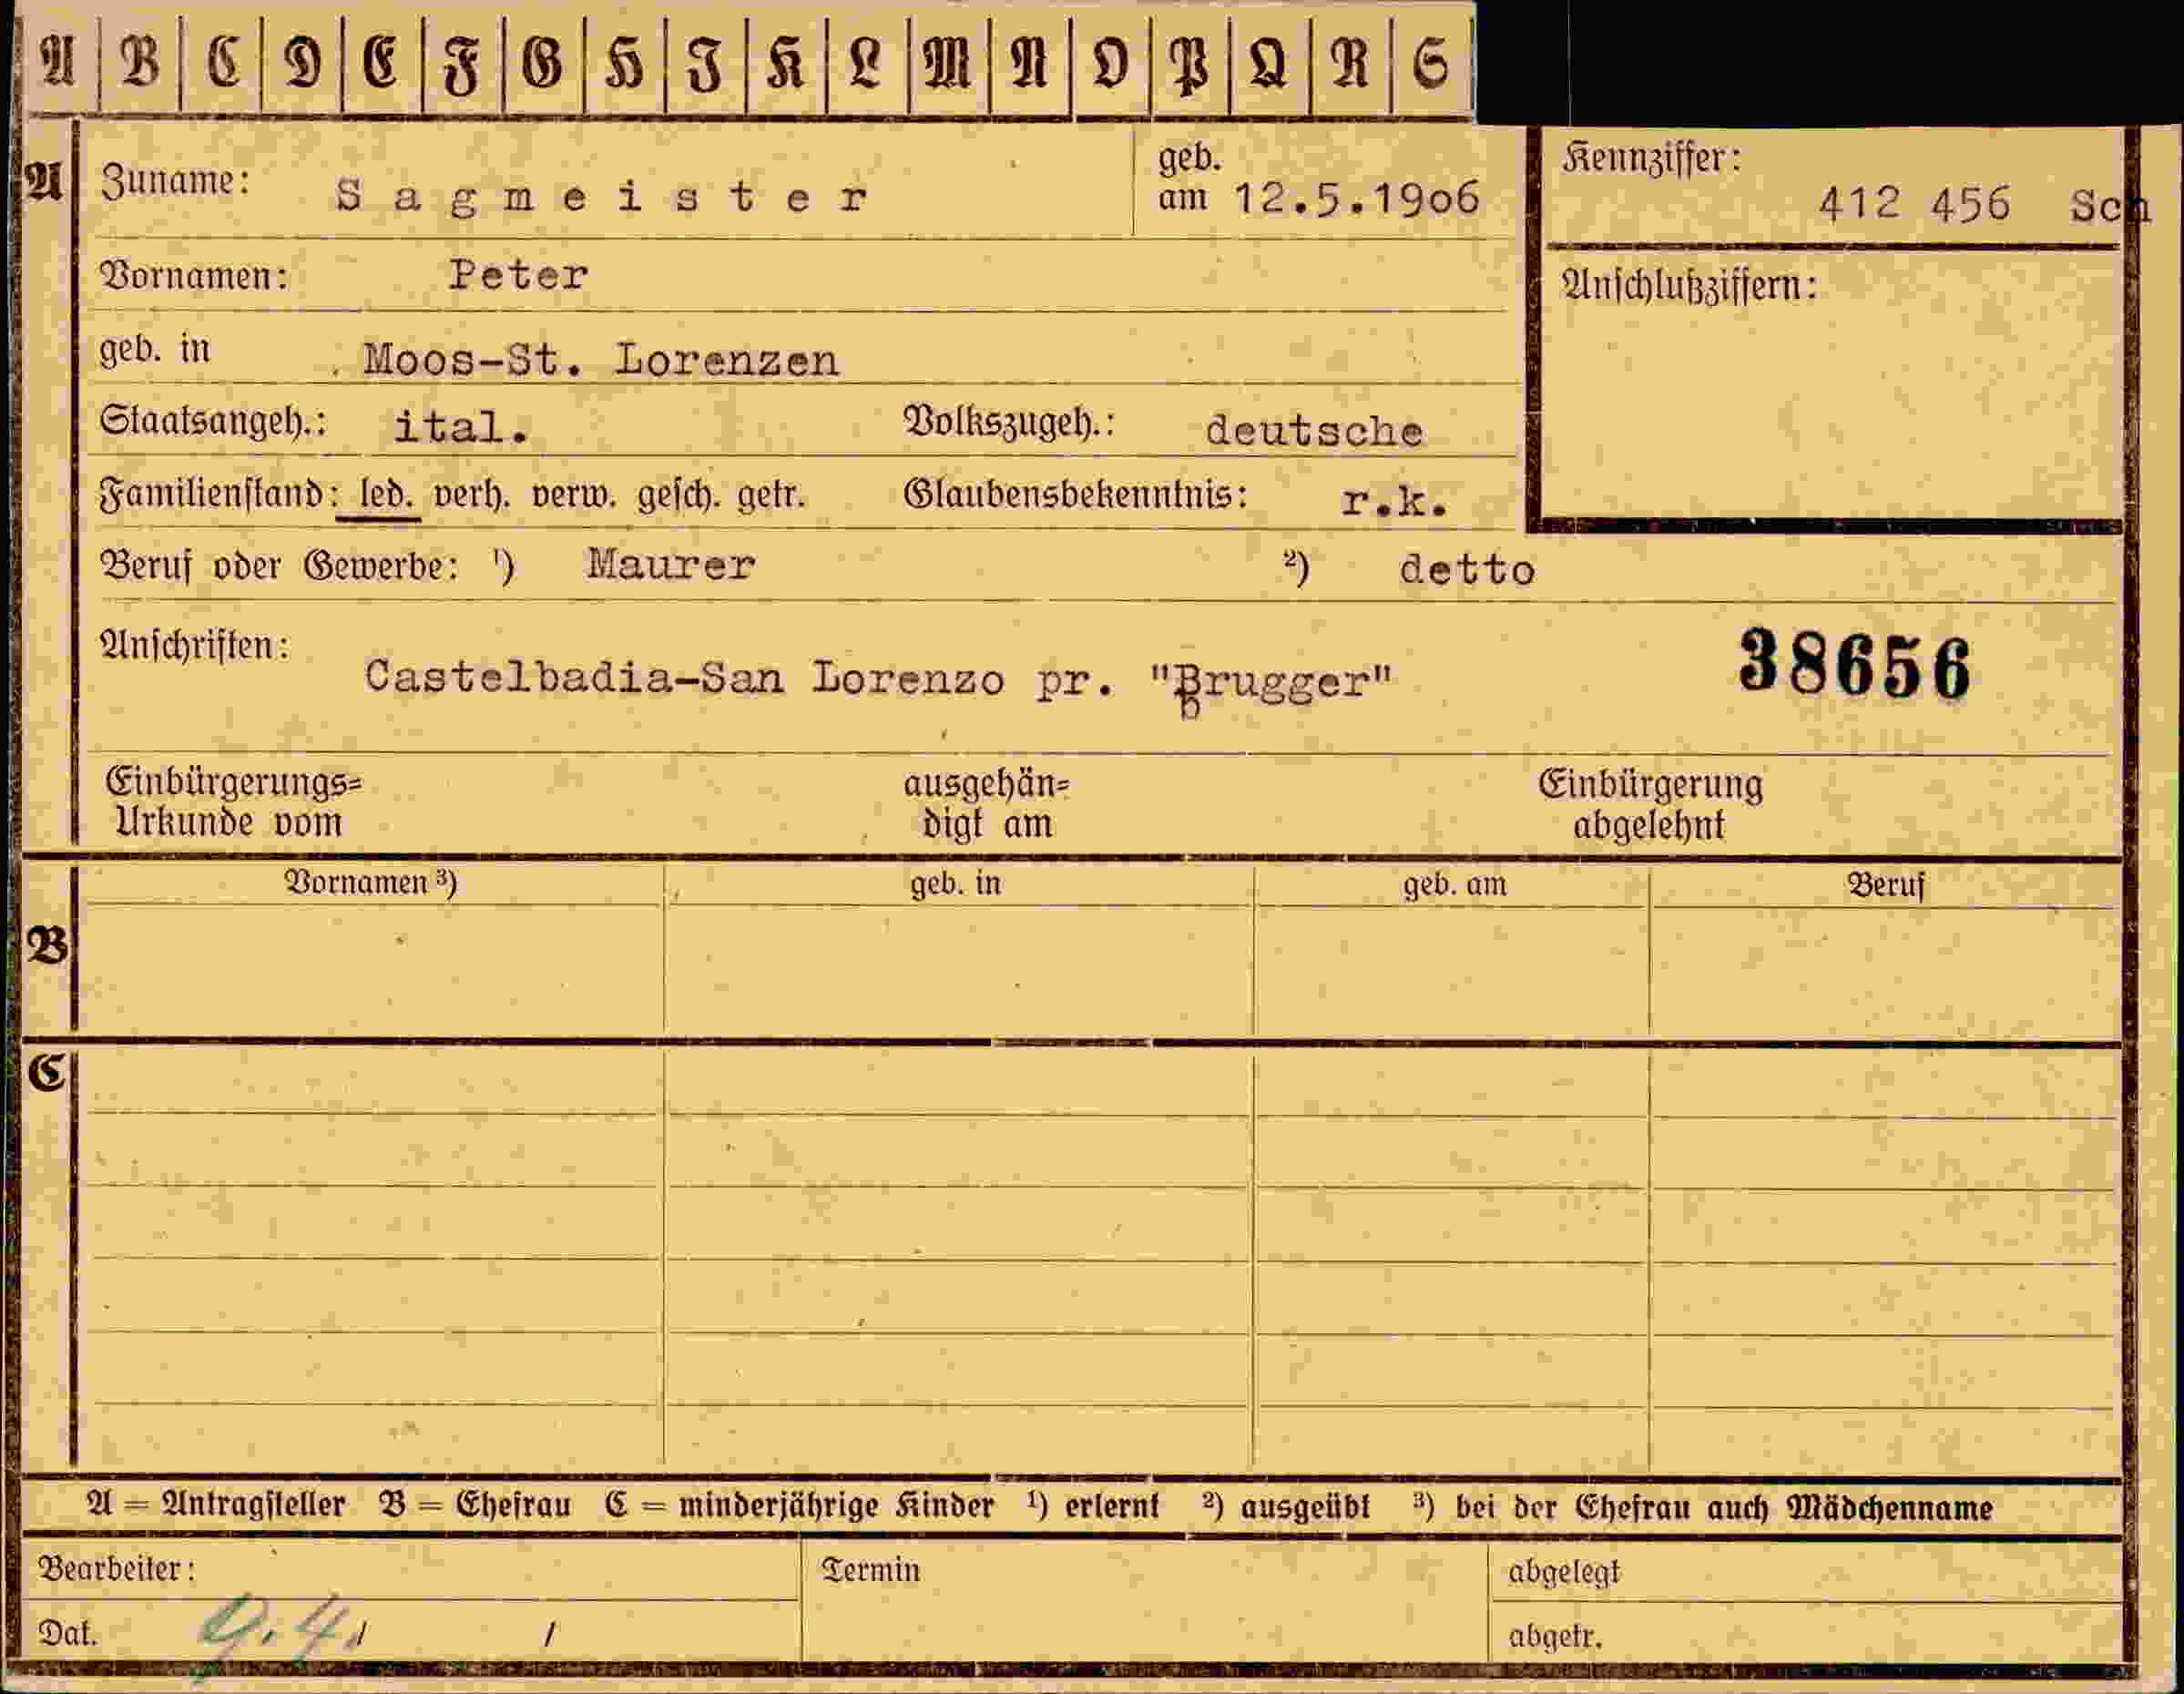 A B C D E F G H I K L M N O P Q R S
A Zuname: Sagmeister geb. am 12.5.19o6
Kennziffer: 412 456 Sch
Vornamen: Peter
Anschlußziffern:
geb. in Moos-St. Lorenzen
Staatsangeh.: ital. Volkszugeh.: deutsche
Familienstand: led. verh. verw. gesch. getr. Glaubensbekenntnis: r.k.
Beruf oder Gewerbe: ¹) Maurer ²) detto
Anschriften: Castelbadia-San Lorenzo pr. "Brugger" 38656
Einbürgerungs= ausgehän= Einbürgerung
Urkunde vom digt am abgelehnt
Vornamen ³) geb. in geb. am Beruf
B
C
A = Antragsteller B = Ehefrau C = minderjährige Kinder ¹) erlernt ²) ausgeübt ³) bei der Ehefrau auch Mädchenname
Bearbeiter: Termin abgelegt
Dat. 9.4. / abgetr.